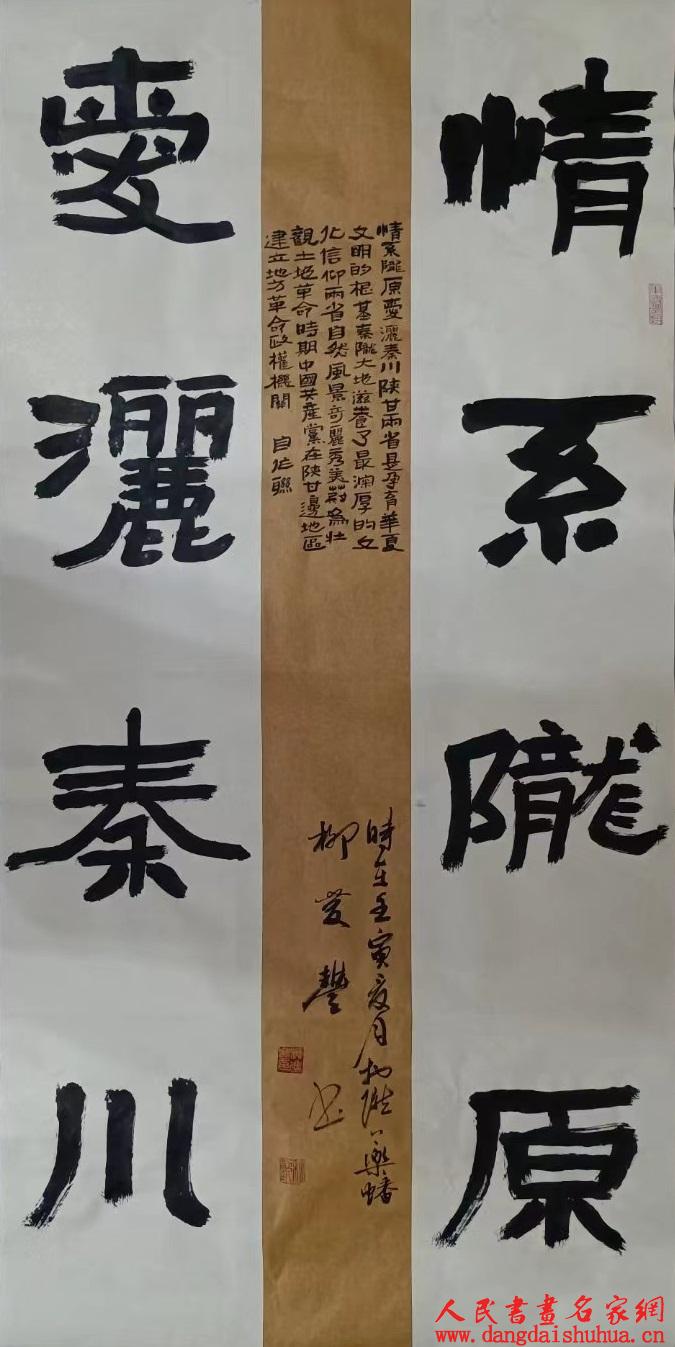 情系隴原
愛灑秦川
情系隴原愛灑秦川陝甘兩省是孕育華夏
文明的根基秦隴大地滋養了最深厚的文
化信仰兩省自然風景奇麗秀美蔚為壯
觀土地革命時期中國共產黨在陝甘邊地區
建立地方革命政權機關 自作聯
時在壬寅夏月於隴上樂蟠
柳發豐书
人民書畫名家網
www.dangdaishuhua.cn